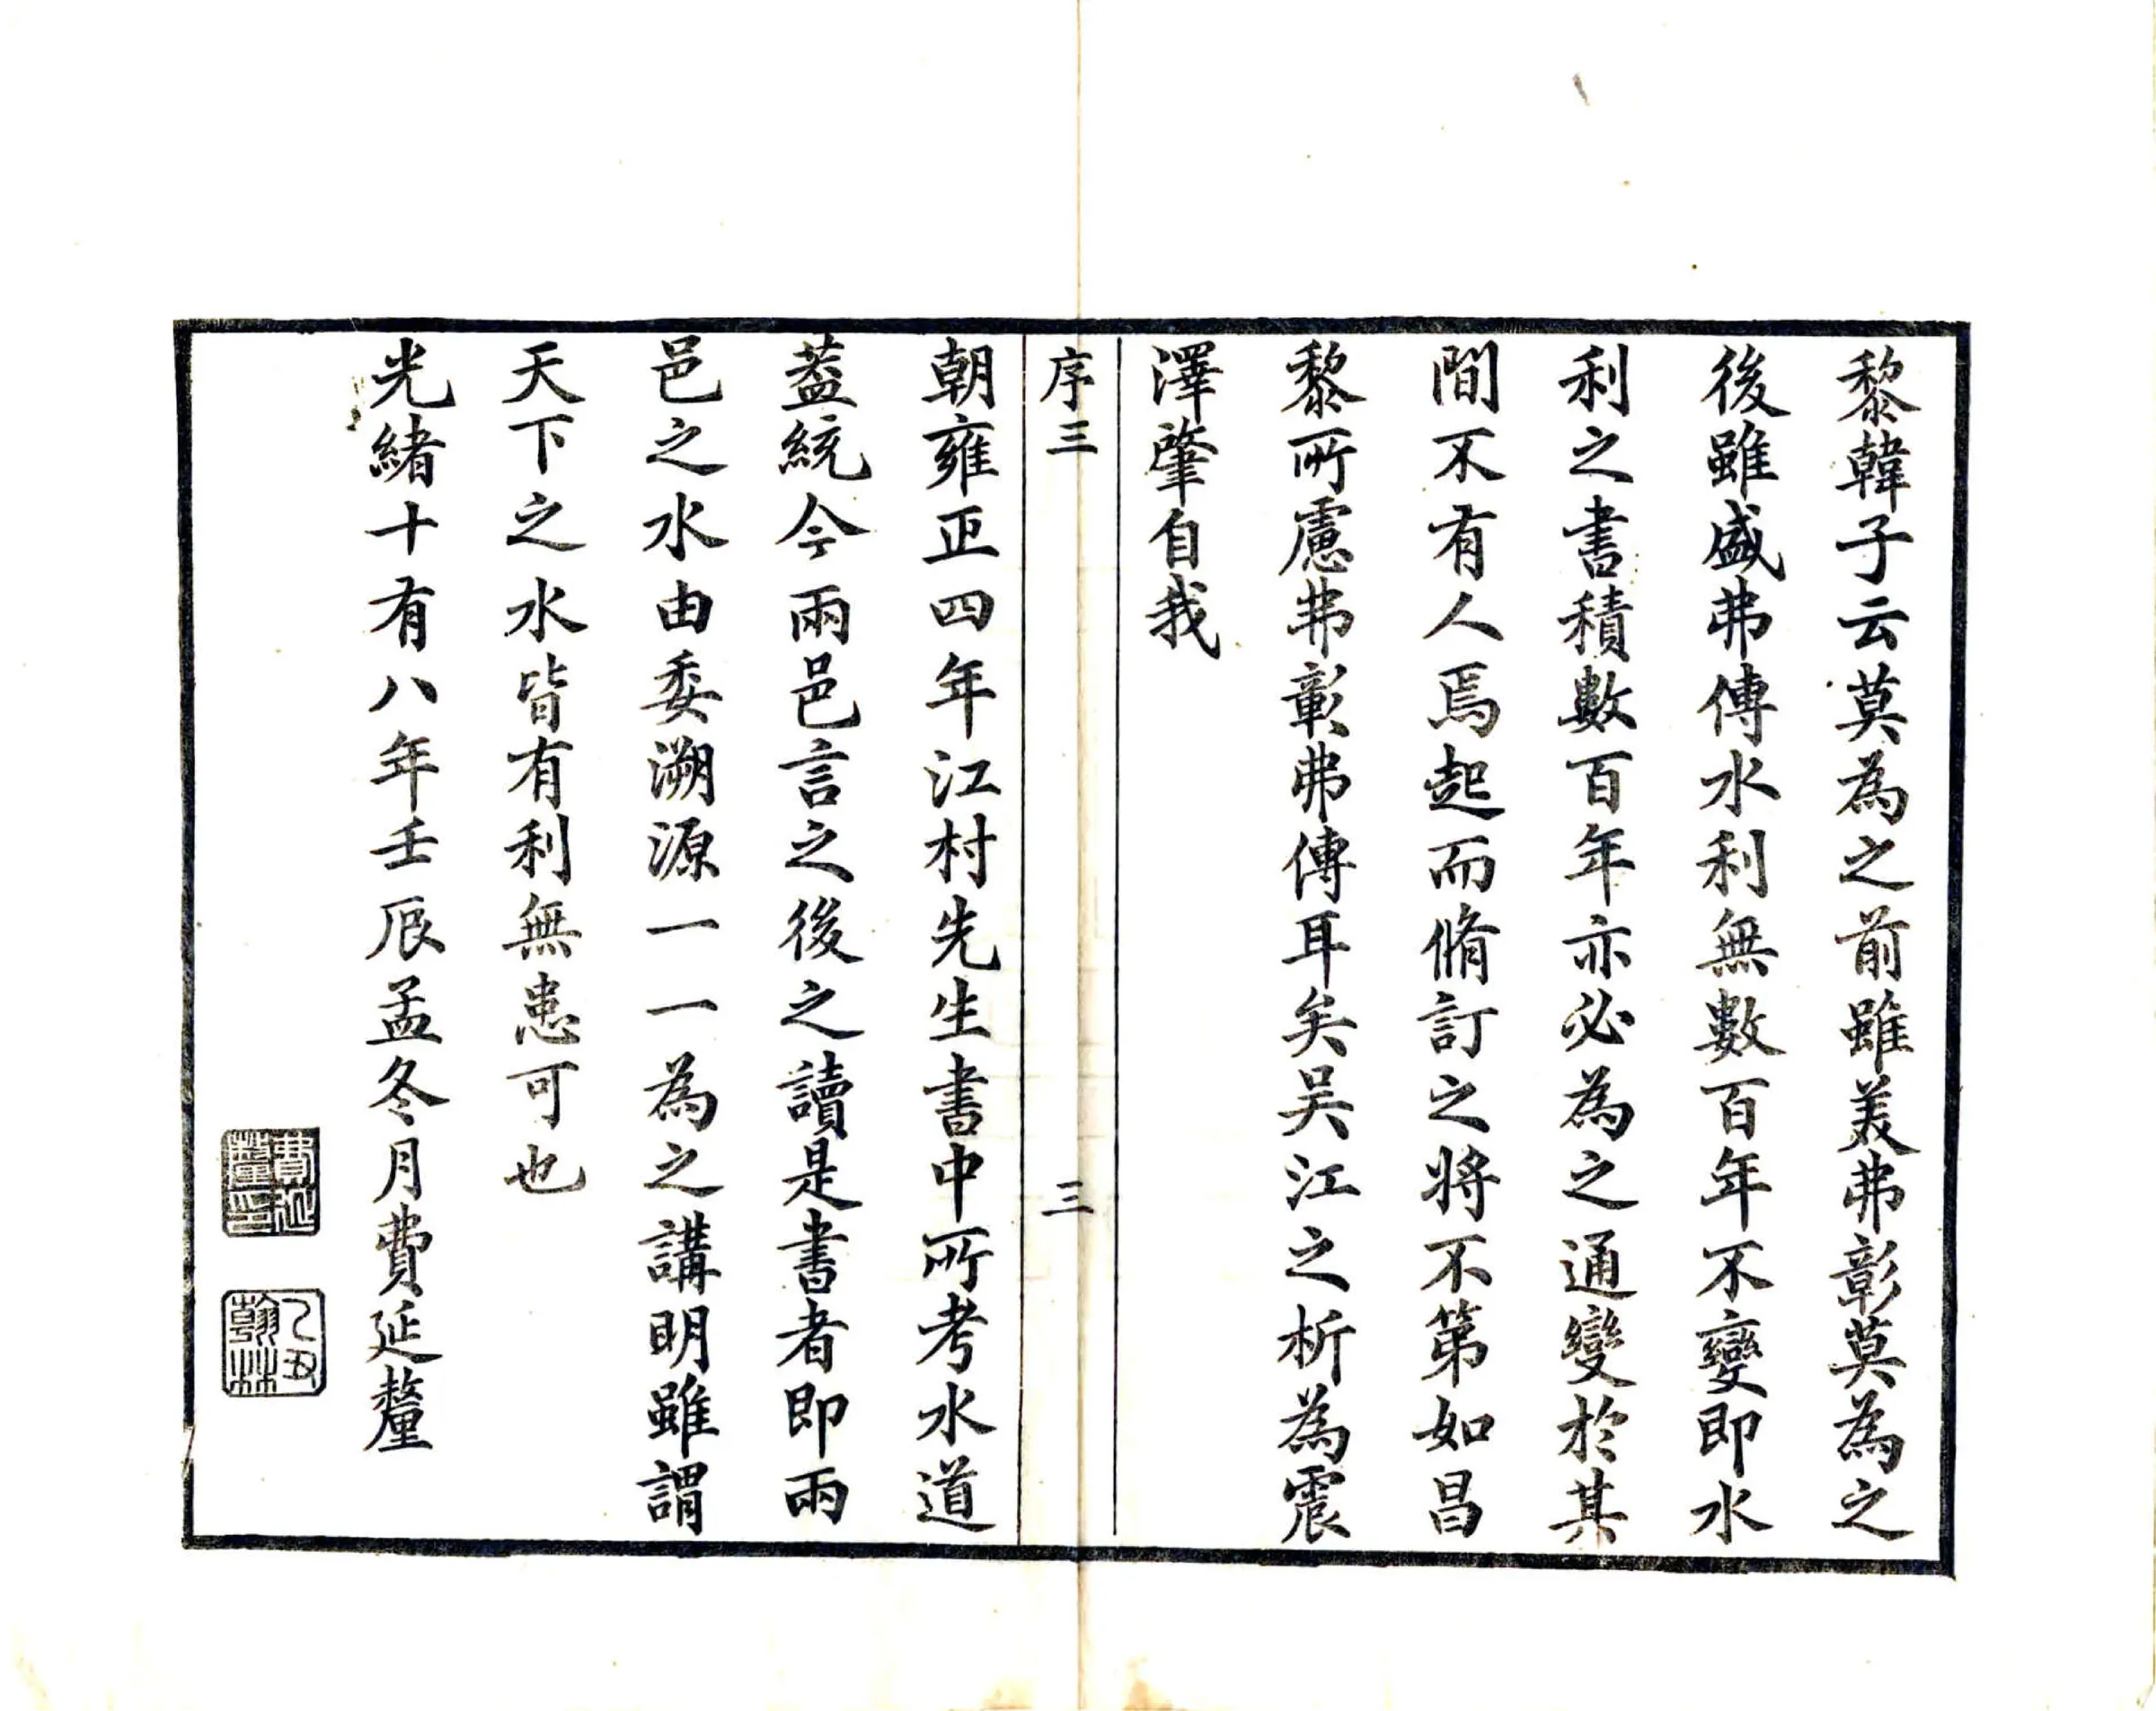 黎韓子云莫為之前雖美弗彰莫為之
後雖盛弗傳水利無數百年不變即水
利之書積數百年亦必為之通變於其
間不有人焉起而脩訂之將不第如昌
黎所慮弗彰弗傳耳矣吴江之析為震
澤肇自我
序三
三
朝雍正四年江村先生書中所考水道
葢統今兩邑言之後之讀是書者即兩
邑之水由委溯源一一為之講明雖謂
天下之水皆有利無患可也
光緒十有八年壬辰孟冬月費延釐
費延釐印
乙丑翰林